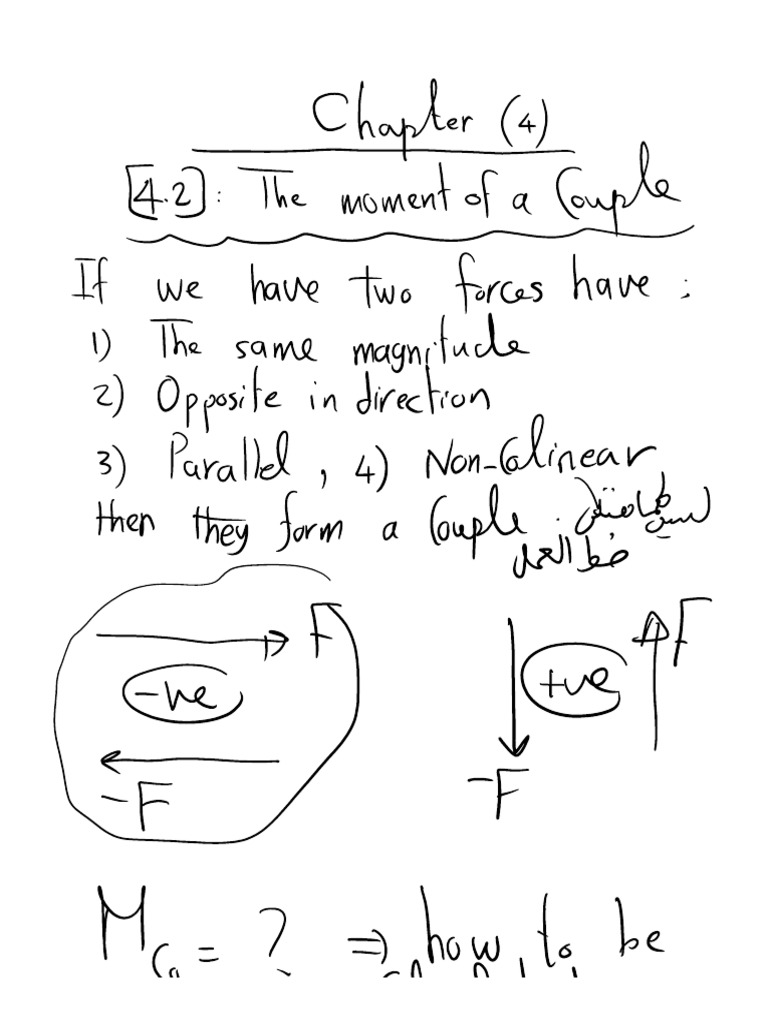 Chapter (4)
4.2 : The moment of a Couple
If we have two forces have :
1) The same magnitude
2) Opposite in direction
3) Parallel , 4) Non-Colinear
then they form a Couple .
خط العمل
F
-ve
-F
+ve
F
-F
M = ? ⇒ how to be